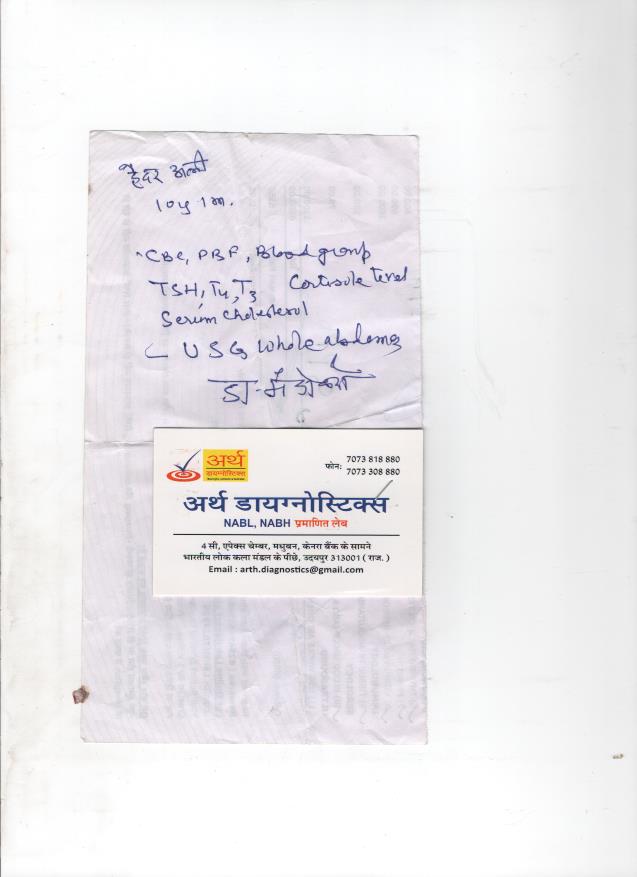 हैदर अली
10y 1m.
CBC, PBF, Blood group
TSH, T4, T3 Cortisole level
Serum cholesterol
USG whole abdomen
डा.
अर्थ
डायग्नोस्टिक्स
फोन: 7073 818 880
7073 308 880
अर्थ डायग्नोस्टिक्स
NABL, NABH प्रमाणित लेब
4 सी, एपेक्स चेम्बर, मधुबन, केनरा बैंक के सामने
भारतीय लोक कला मंडल के पीछे, उदयपुर 313001 ( राज. )
Email : arth.diagnostics@gmail.com